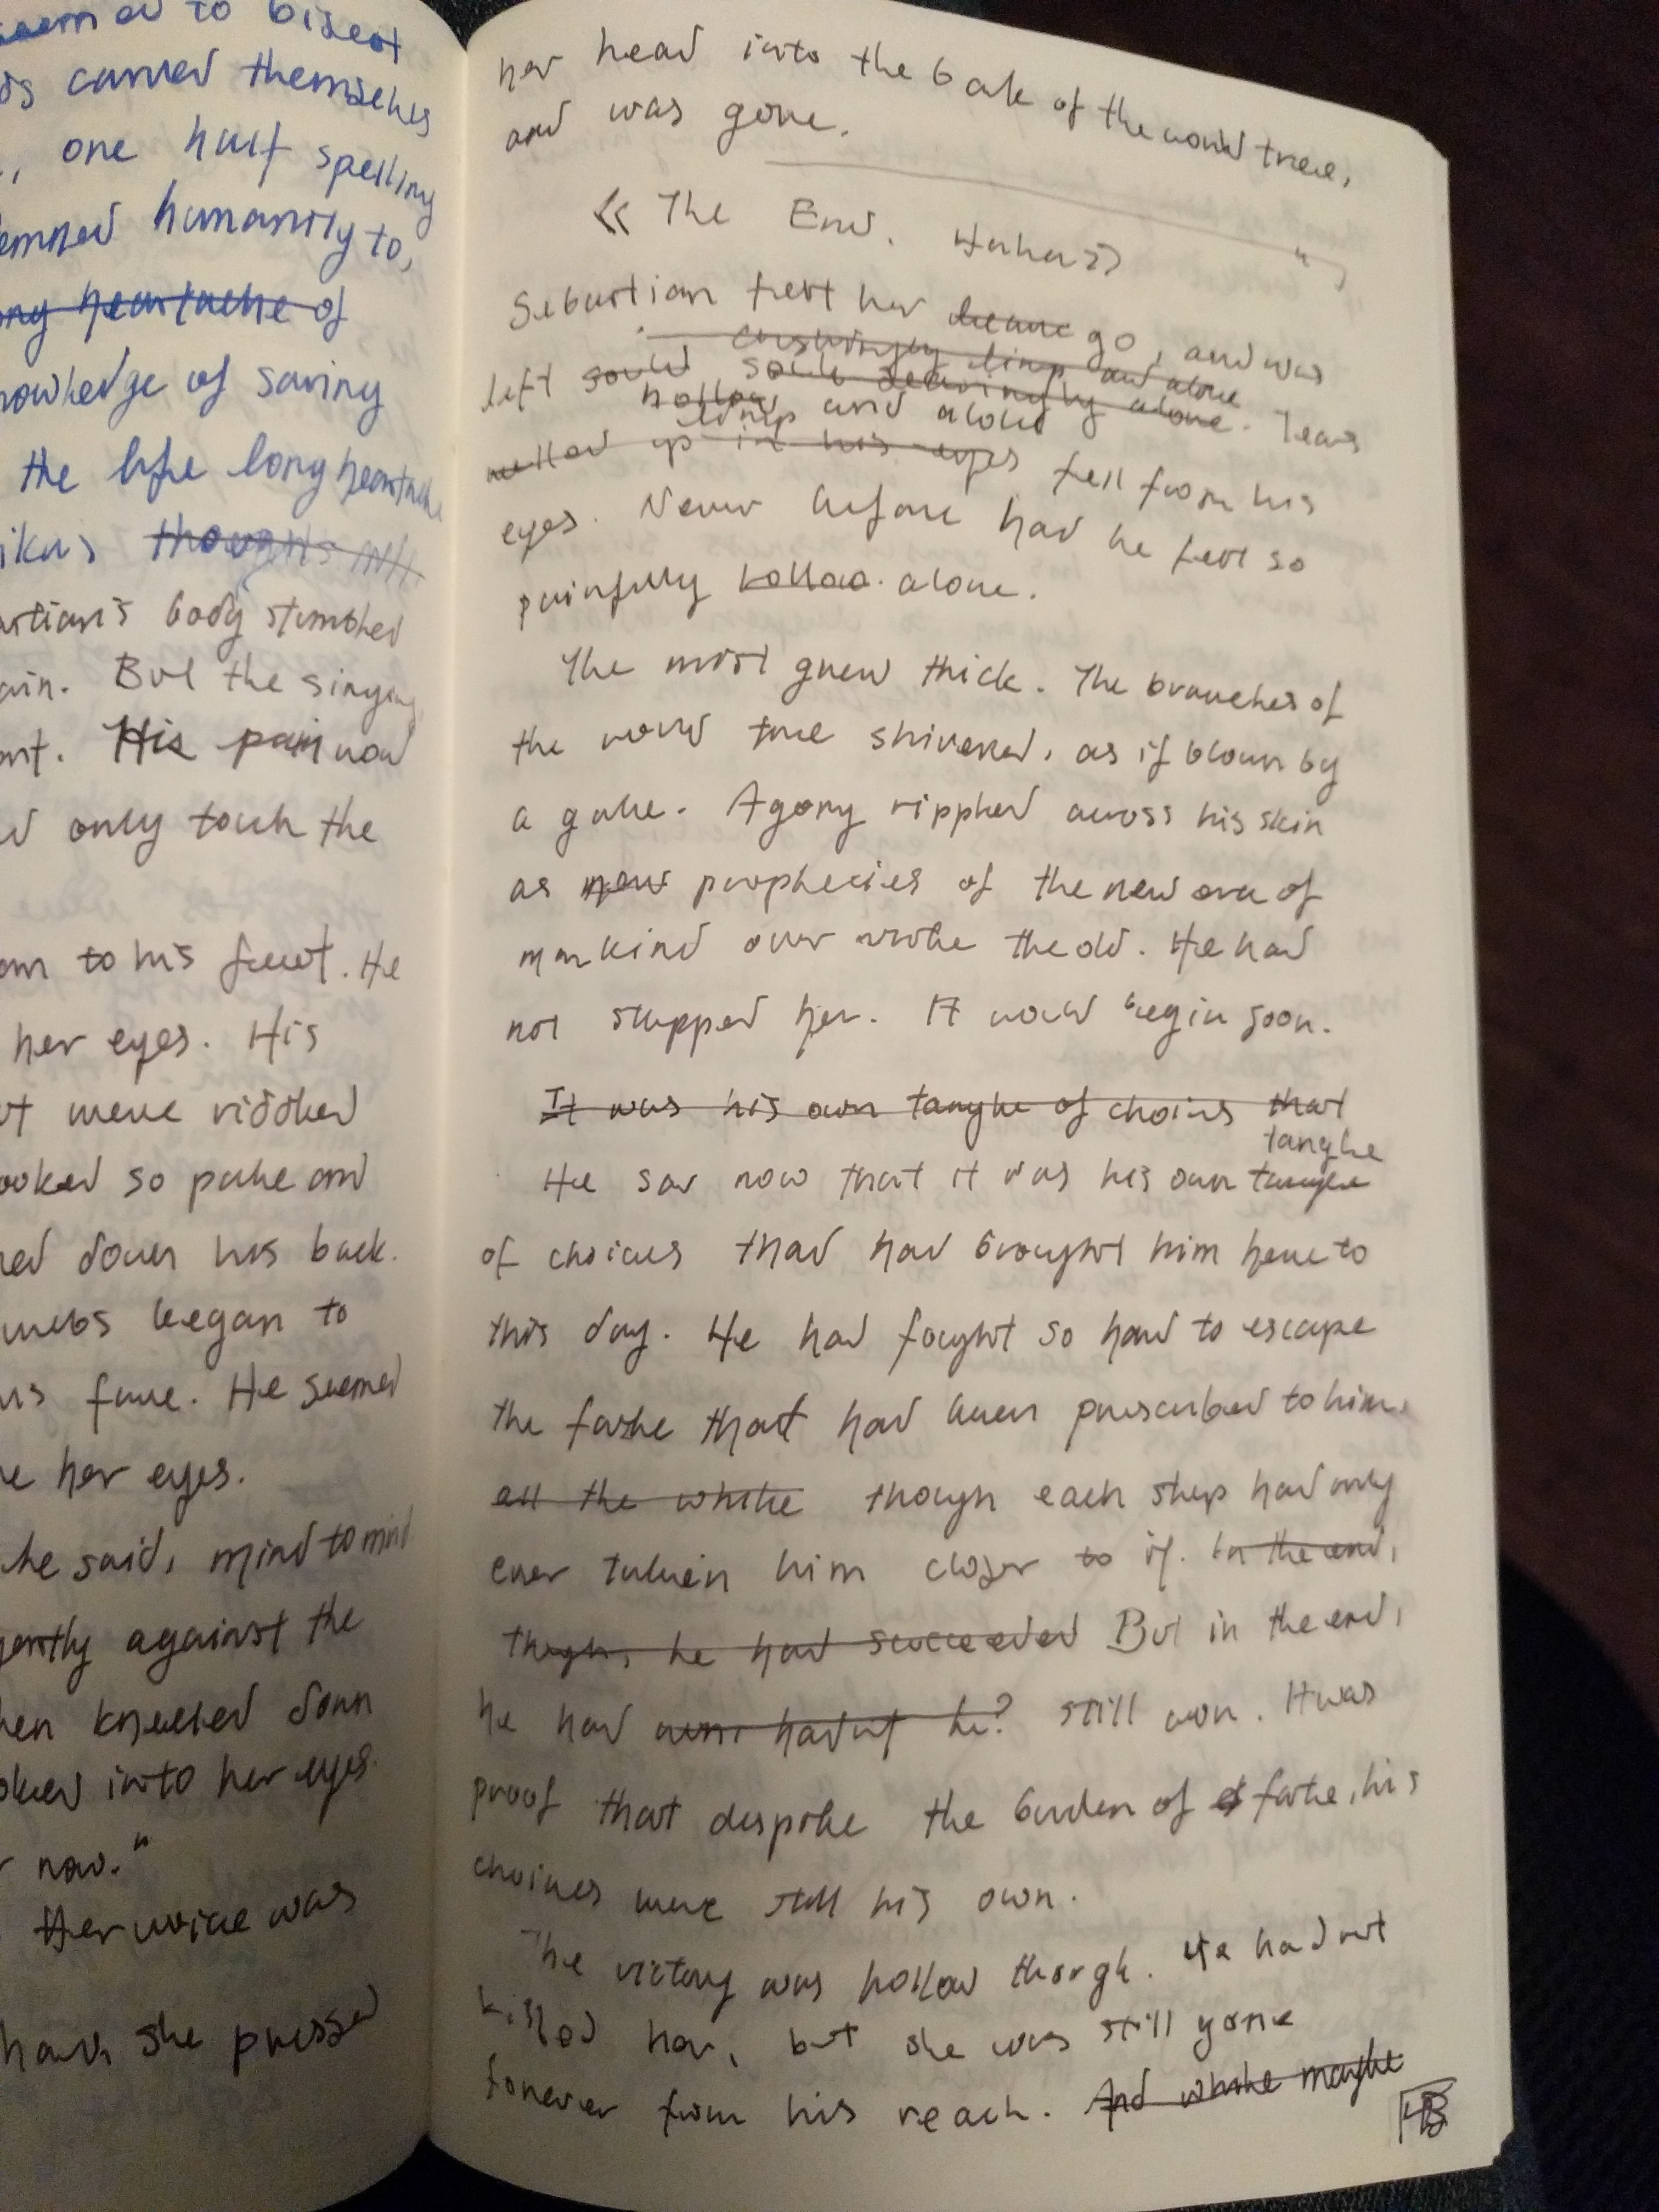 seemed to bisect
carved themselves
, one half spelling
humanity to,
heartache of
knowledge of saving
the life long heartache
thoughts
body stumbled
But the singing
His pain now
only touch the
to his feet. He
her eyes. His
were riddled
so pale and
down his back.
began to
He seemed
her eyes.
he said, mind to mind
against the
kneeled down
into her eyes.
now."
Her voice was
she pressed
her head into the bark of the world tree,
and was gone.
<< The End. Hahaa >>
Sebastian felt her go, and was
cushingly limp and alone
left souls alone. Tears
hollow
limp and alone
welled up in his eyes fell from his
eyes. Never before had he felt so
painfully hollow. alone.
The mist grew thick. The branches of
the world tree shivered, as if blown by
a gale. Agony rippled across his skin
as new prophecies of the new era of
mankind over wrote the old. He had
not stopped her. It would begin soon.
It was his own tangle of choices that
tangle
He saw now that it was his own tangle
of choices that had brought him here to
this day. He had fought so hard to escape
the fate that had been prescribed to him,
all the while though each step had only
ever taken him closer to it. In the end,
though, he had succeeded But in the end,
he had won, hadn't he? still won. It was
proof that despite the burden of of fate, his
choices were still his own.
The victory was hollow though. He had not
killed her, but she was still gone
forever from his reach. And while maybe